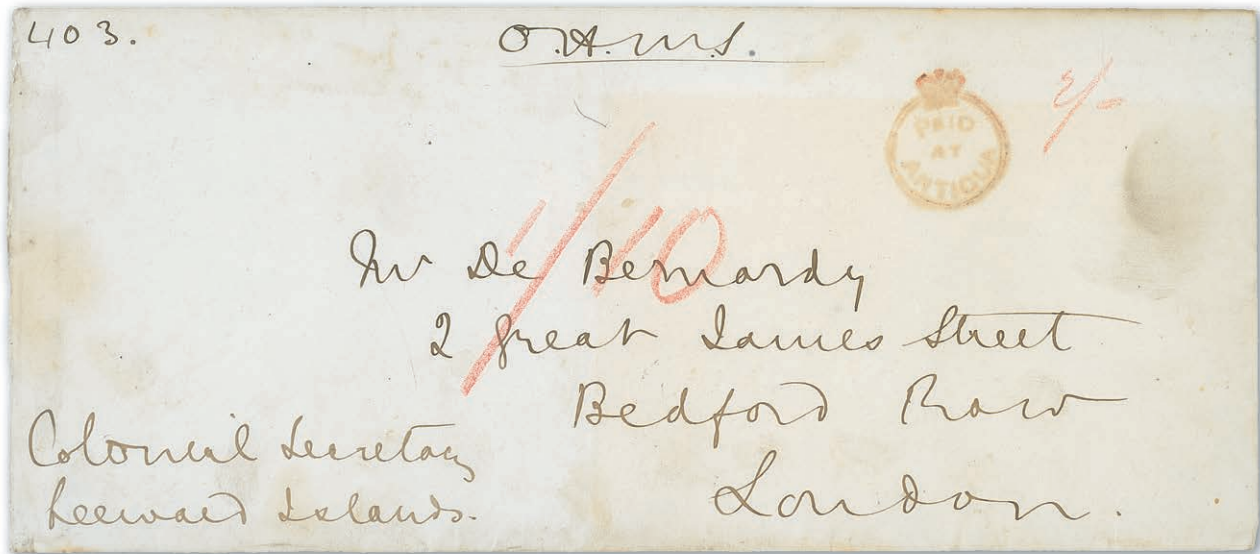 403.
O.H.M.S.
PAID
AT
ANTIGUA
2/-
1/10
Mr De Bernardy
2 Great James Street
Bedford Row
London.
Colonial Secretary
Leeward Islands.